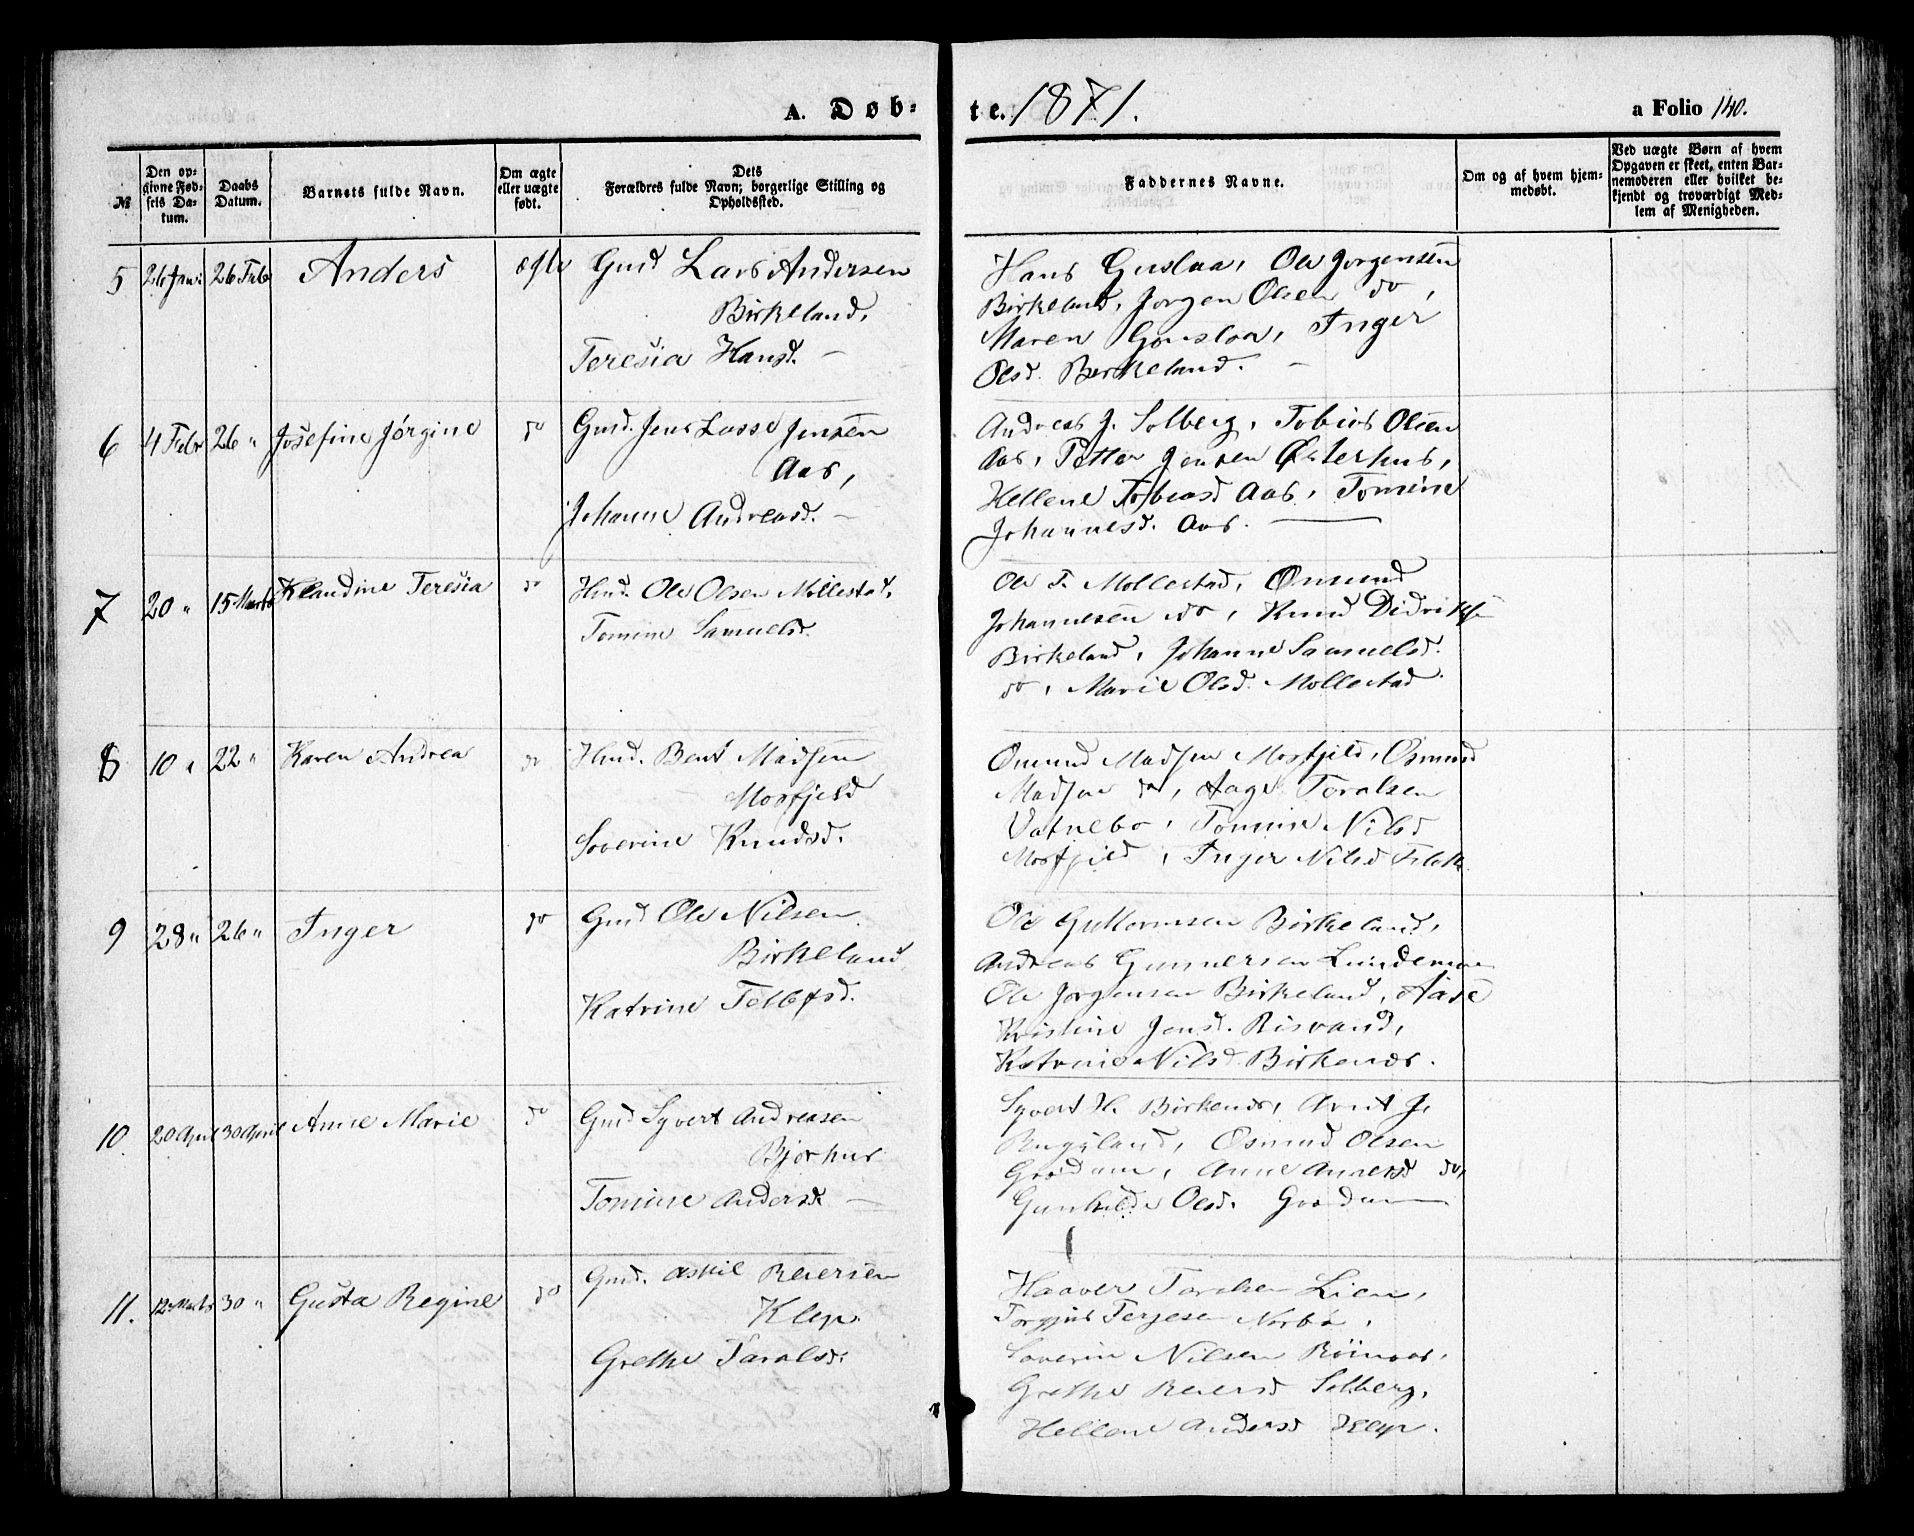 A. Døb-
te. 1871.
a Folio 140.
№
Den op-
givne Fød-
sels Da-
tum.
Daabs
Datum.
Barnets fulde Navn.
Om ægte
eller uægte
født.
Dets
Forældres fulde Navn; borgerlige Stilling og
Opholdssted.
Faddernes Navne.
Om og af hvem hjem-
medøbt.
Ved uægte Børn af hvem
Opgaven er skeet, enten Bar-
nemoderen eller hvilket be-
kjendt og troværdigt Med-
lem af Menigheden.
5 26 Jani 26 Feb Anders ægte Gmd Lars Andersen
Birkeland,
Teresia Hansd. —
Hans Guslaa, Ole Jorgensen
Birkeland, Jorgen Olsen do,
Maren Guslaa, Inger
Olsd. Berkeland. —
6 4 Febr 26 " Josefine Jørgine do Gmd. Jens Lasse Jensen
Aas,
Johanne Andreasd. —
Andreas J. Solberg, Tobias Olsen
Aas, Petter Jensen Østerhus,
Hellene Tobiasd Aas, Tomine
Johannesd. Aas. —
7 20 " 15 Marts Klaudine Teresia do Hmd. Ole Olsen Mollestad,
Tomine Samuelsd.
Ole T. Mollestad, Omund
Johannesen do, Knud Didriks
Birkeland, Johanne Samuelsd.
do, Marie Olsd. Mollestad
8 10 " 22 " Karen Andrea do Hmd. Bent Madsen
Mosfjeld
Soverine Knudsd.
Omund Madsen Mosfjeld, Osmund
Madsen do, Aage Toralsen
Vatnebo, Tomine Nilsd
Mosfjeld, Inger Nilsd Flak
9 28 " 26 " Inger do Gmd Ole Nilsen
Birkeland,
Katrine Tellefsd.
Ole Guttormsen Birkeland,
Andreas Gunnersen Lundemo
Ole Jorgensen Birkeland, Aase
Kristine Jensd. Risvand,
Katrine Nilsd. Birkenes.
10 20 April 30 April Anne Marie do Gmd Syvert Andreasen
Bjorhus
Tomine Andersd. —
Syvert H. Birkenes, Arnt J.
Rugsland, Osmund Olsen
Grødum, Anne Andersd do,
Gunhilde Olsd. Grødum
11. 12 Marts 30 " Gusta Regine do Gmd. Askil Reiersen
Klep.
Grethe Taralsd.
Haaver Taralsen Lien,
Torgjus Terjesen Norbo,
Soverin Nilsen Röinaas,
Grethe Reiersd Solberg,
Hellene Andersd Klep.